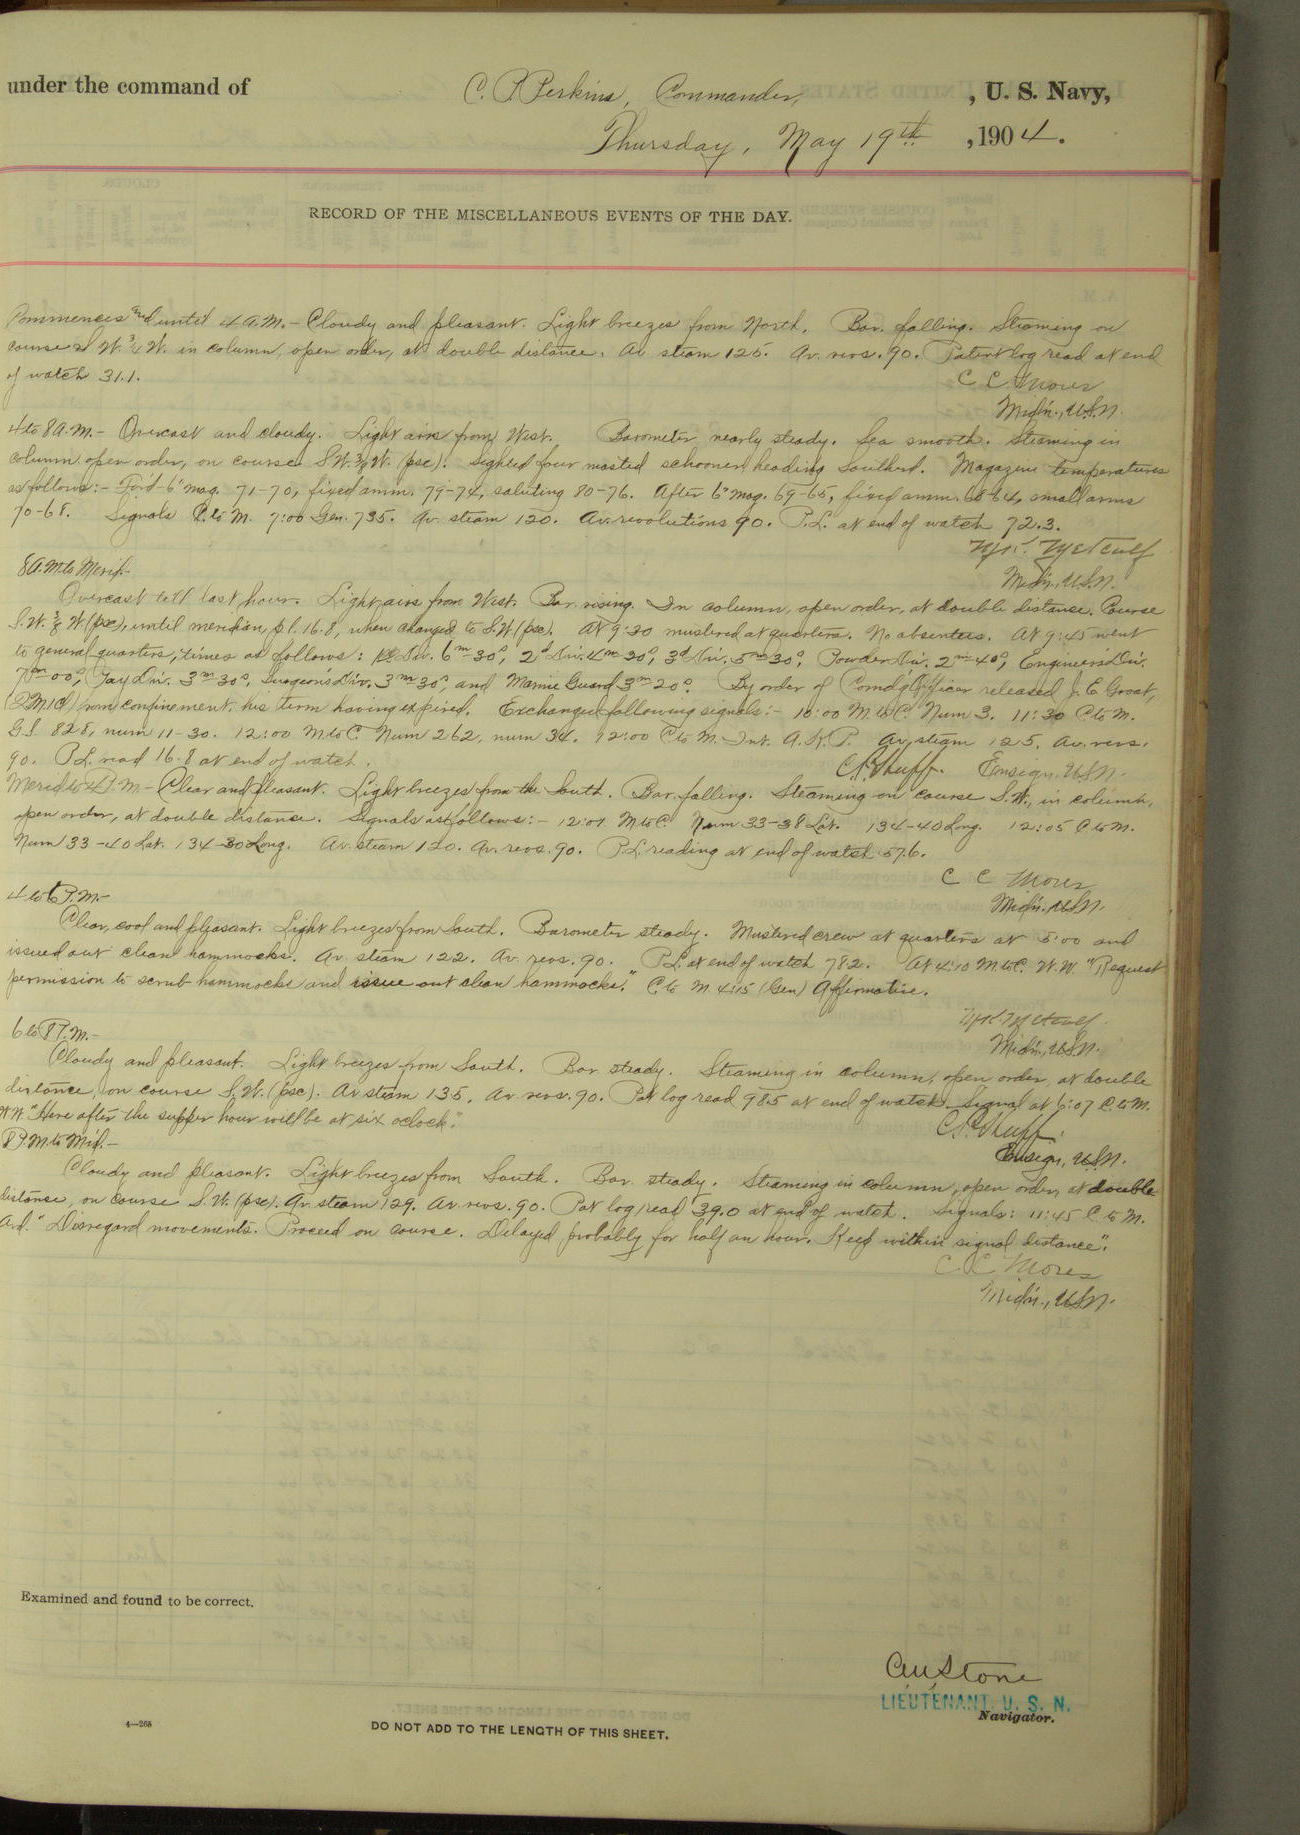 under the command of C. P. Perkins, Commander, , U. S. Navy,
Thursday, May 19th , 1904.
RECORD OF THE MISCELLANEOUS EVENTS OF THE DAY.
Commences and until 4 A.M. – Cloudy and pleasant. Light breezes from North. Bar. falling. Steaming on
course S W. ¾ W. in column, open order, at double distance. Av. steam 125. Av. revs. 90. Patent log read at end
of watch 31.1. C C Mores
Midn., U.S.N.
4 to 8 A.M. – Overcast and cloudy. Light airs from West. Barometer nearly steady. Sea smooth. Steaming in
column open order, on course S W. W. (psc). Sighted four masted schooner heading Southerd. Magazine temperatures
as follows:- Ford 6" mag. 71-70, fixed amm. 79-74, saluting 80-76. After 6" mag. 69-65, fixed amm. 68-64, small arms
70-68. Signals C. to M. 7:00 Gen. 735. Av. steam 120. Av. revolutions 90. P.L. at end of watch 72.3.
Metcalf
Midn., U.S.N.
8 A.M. to Merid.-
Overcast till last hour. Light airs from West. Bar. rising. In column, open order, at double distance. Course
S. W. W (psc), until meridian, p l. 16.8, when changed to S.W (psc). At 9:30 mustered at quarters. No absentees. At 9:45 went
to general quarters, times as follows: Div. 6m-30s, 2d Div. 4m-30s, 3d Div. 5m-30s, Powder Div. 2m-40s, Engineers Div.
7m-00s, Nav Div. 3m 30s, Surgeons Div. 3m 30s, and Marine Guard 3m 20s. By order of Comdg Officer released J. E. Groat,
from confinement, his term having expired. Exchanged following signals:- 10:00 M to C. Num 3. 11:30 C to M.
G.S. 828, num 11-30. 12:00 M to C. Num 262, num 34. 12:00 C to M. Int. A.K.P. Av. steam 125. Av. revs.
90. P.L. read 16.8 at end of watch. Shuff. Ensign, U.S.N.
Merid to 4 P.M – Clear and pleasant. Light breezes from the South. Bar. falling. Steaming on course S.W., in column,
open order, at double distance. Signals as follows:- 12:01 M to C. Num 33-38 Lat. 134-40 Long. 12:05 C to M.
Num 33-40 Lat. 134-30 Long. Av. steam 120. Av. revs. 90. P.L. reading at end of watch 57.6.
C C Mores
Midn., U.S.N.
4 to 6 P.M.-
Clear, cool and pleasant. Light breezes from South. Barometer steady. Mustered crew at quarters at 5:00 and
issued out clean hammocks. Av. steam 122. Av. revs. 90. P.L. at end of watch 78.2. At 4:10 M to C. W.W. "Request
permission to scrub hammocks and issue out clean hammocks." C. to M. 4:15 (Gen) Affirmative.
Metcalf
Midn., U.S.N.
6 to 8 P.M.-
Cloudy and pleasant. Light breezes from South. Bar steady. Steaming in column, open order, at double
distance, on course S.W. (psc). Av steam 135. Av. revs. 90. Pat log read 98.5 at end of watch. Signal at 6:07 C to M.
W.W. "Here after the supper hour will be at six oclock."
Shuff.
Ensign, U.S.N.
8 P.M. to Mid.-
Cloudy and pleasant. Light breezes from South. Bar. steady. Steaming in column, open order, at double
distance, on course S.W. (psc). Av. steam 129. Av. revs. 90. Pat log read 39.0 at end of watch. Signals: 11:45 C to M.
Ard. "Disregard movements. Proceed on course. Delayed probably for half an hour. Keep within signal distance".
C. C. Mores
Midn., U.S.N.
Examined and found to be correct.
Stone
LIEUTENANT, U. S. N.
Navigator.
4—265
DO NOT ADD TO THE LENGTH OF THIS SHEET.